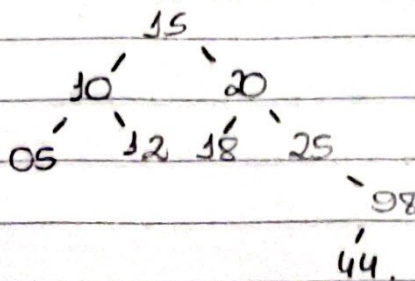 15
10 20
05 12 18 25
98
44.